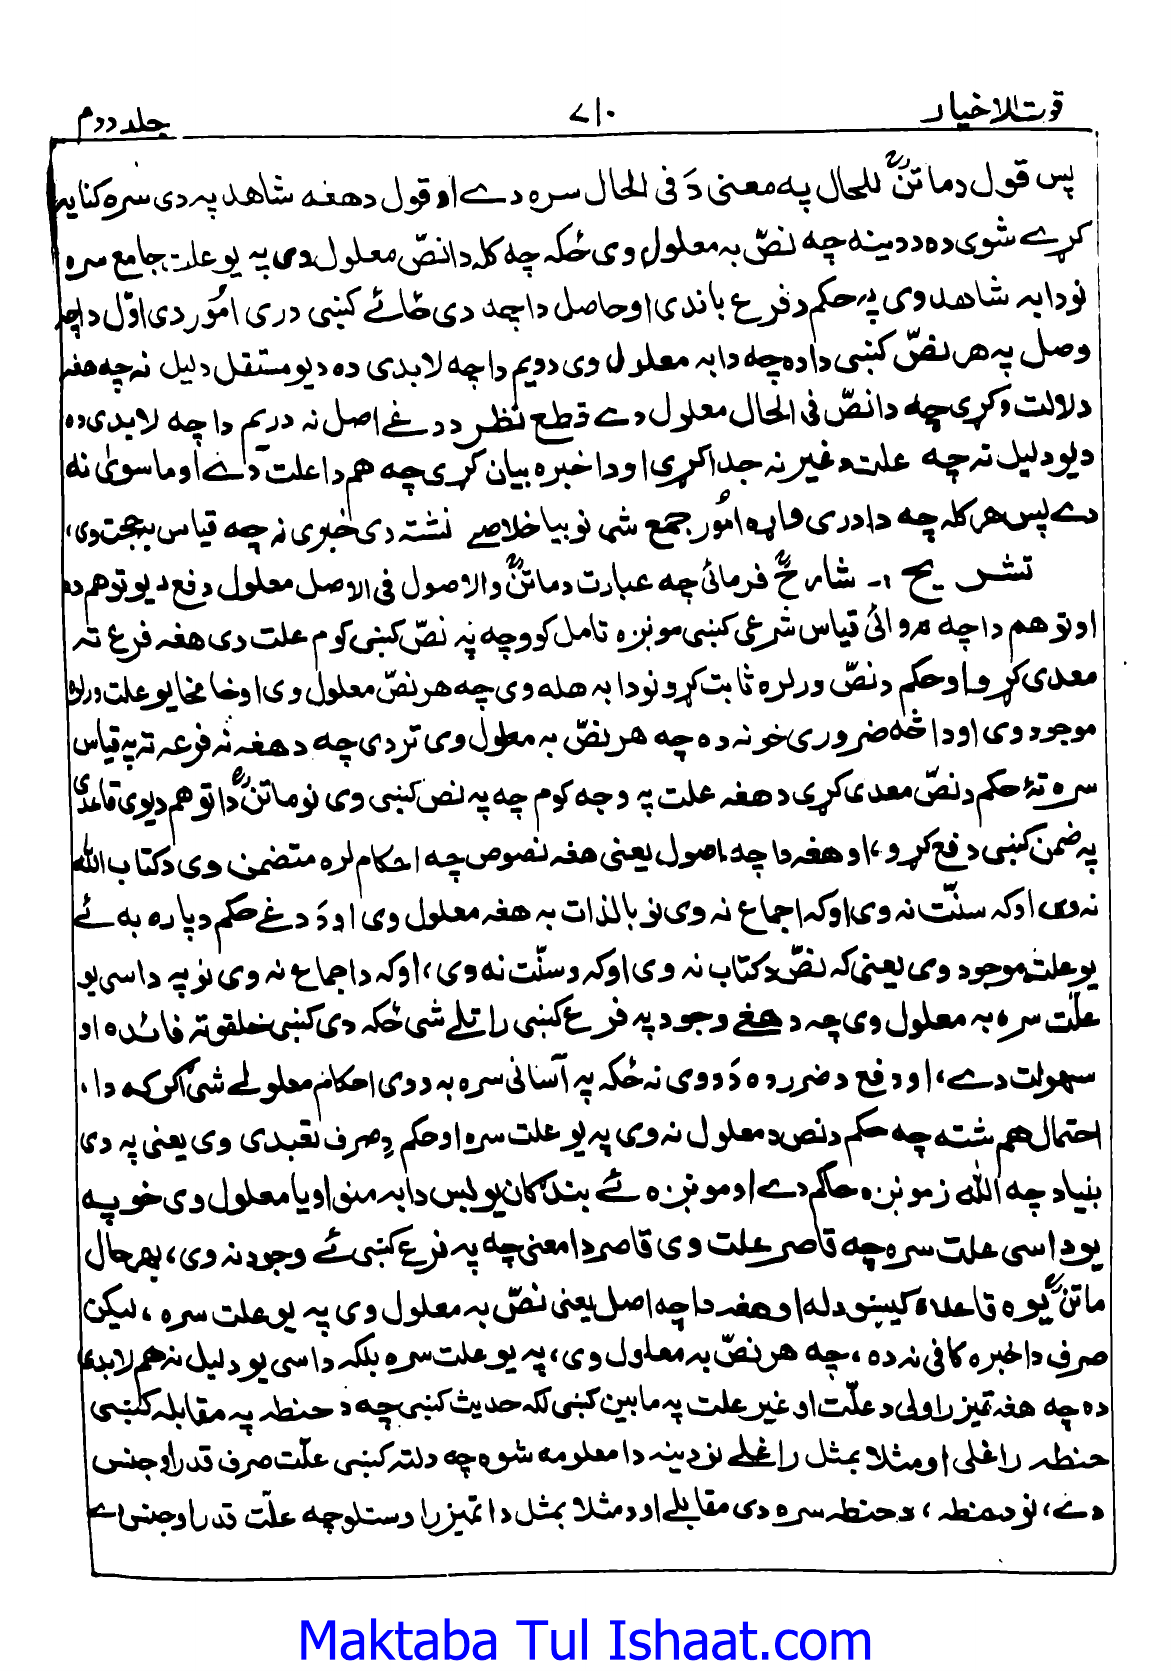 قوت الاخیار ۷۱۰ جلد دوم
پس قول دماتنؒ للحال په معنی دَ فی الحال سره دے او قول دهغه شاهد په دی سره کنایه
کړے شوی ده ددینه چه نصّ به معلول وی ځکه چه کله دا نصّ معلول وی په یو علت جامع سره
نو دا به شاهد وی په حکم د فرع باندی او حاصل داچه دی ځائے کښی دری امُور دی اوّل داچه
وصل په هر نصّ کښی دا ده چه دا به معلول وی دویم داچه لابدی ده د یو مستقل دلیل نه چه هغه
دلالت وکړی چه دا نصّ فی الحال معلول دے قطع نظر ددغے اصل نه دریم داچه لابدی ده
د یو دلیل نه چه علت د غیر نه جدا کړی او دا خبره بیان کړی چه هم دا علت دے او ماسویٰ نه
دے پس هر کله چه دا دری واړه امُور جمع شی نو بیا خلاصے نشته دی خبری نه چه قیاس به حجت وی،
تشریح :۔ شارحؒ فرمائی چه عبارت دماتنؒ والاصول فی الاصل معلول دفع د یو توهم ده
او توهم داچه مروائی قیاس شرعی کښی مونږه تامل کوو چه په نصّ کښی کوم علت دی هغه فرع ته
معدی کړو او حکم د نصّ ورلره ثابت کړو نو دا به هله وی چه هر نصّ معلول وی او خامخا یو علت ورلره
موجود وی او دا څه ضروری خو نه ده چه هر نصّ به معلول وی تردی چه دهغه نه فرعه ته په قیاس
سره ته حکم د نصّ معدی کړی دهغه علت په وجه کوم چه په نص کښی وی نو ماتنؒ دا توهم د یوی قاعدی
په ضمن کښی دفع کړو، او هغه داچه اصول یعنی هغه نصوص چه احکام لره متضمن وی د کتاب الله
نه وی او که سنّت نه وی او که اجماع نه وی نو بالذات به هغه معلول وی او دَ دغے حکم دپاره به ئے
یو علت موجود وی یعنی که نصّ د کتاب نه وی او که د سنّت نه وی، او که د اجماع نه وی نو په داسی یو
علّت سره به معلول وی چه دهغے وجود په فرع کښی راتلے شی ځکه دی کښی خلقو ته فائده او
سهولت دے، او دفع د ضرر ده دَ دوی نه ځکه په آسانی سره به ددی احکام معلولے شی اګر که دا،
احتمال هم شته چه حکم د نص د معلول نه وی په یو علت سره او حکم دِ صرف تعبدی وی یعنی په دی
بنیاد چه الله زمونږه حاکم دے او مونږه ئے بندګان یو پس دا به منو او یا معلول وی خو په
یو داسی علت سره چه قاصر علت وی قاصر دا معنی چه په فرع کښی ئے وجود نه وی، بهر حال
ماتنؒ یوه قاعده کیښودله او هغه داچه اصل یعنی نصّ به معلول وی په یو علت سره، لیکن
صرف دا خبره کافی نه ده، چه هر نصّ به معلول وی، په یو علت سره بلکه داسی یو دلیل نه هم لابدی
ده چه هغه تمیز راولی د علّت او غیر علت په مابین کښی لکه حدیث کښی چه د حنطه په مقابله کښی
حنطه راغلی او مثلا بمثل راغلے نو دینه دا معلومه شوه چه دلته کښی علّت صرف قدر او جنس
دے، نو د حنطه، د حنطه سره دی مقابلے او د مثلا بمثل دا تمیز راوستلو چه علّت قدر او جنس دے
Maktaba Tul Ishaat.com